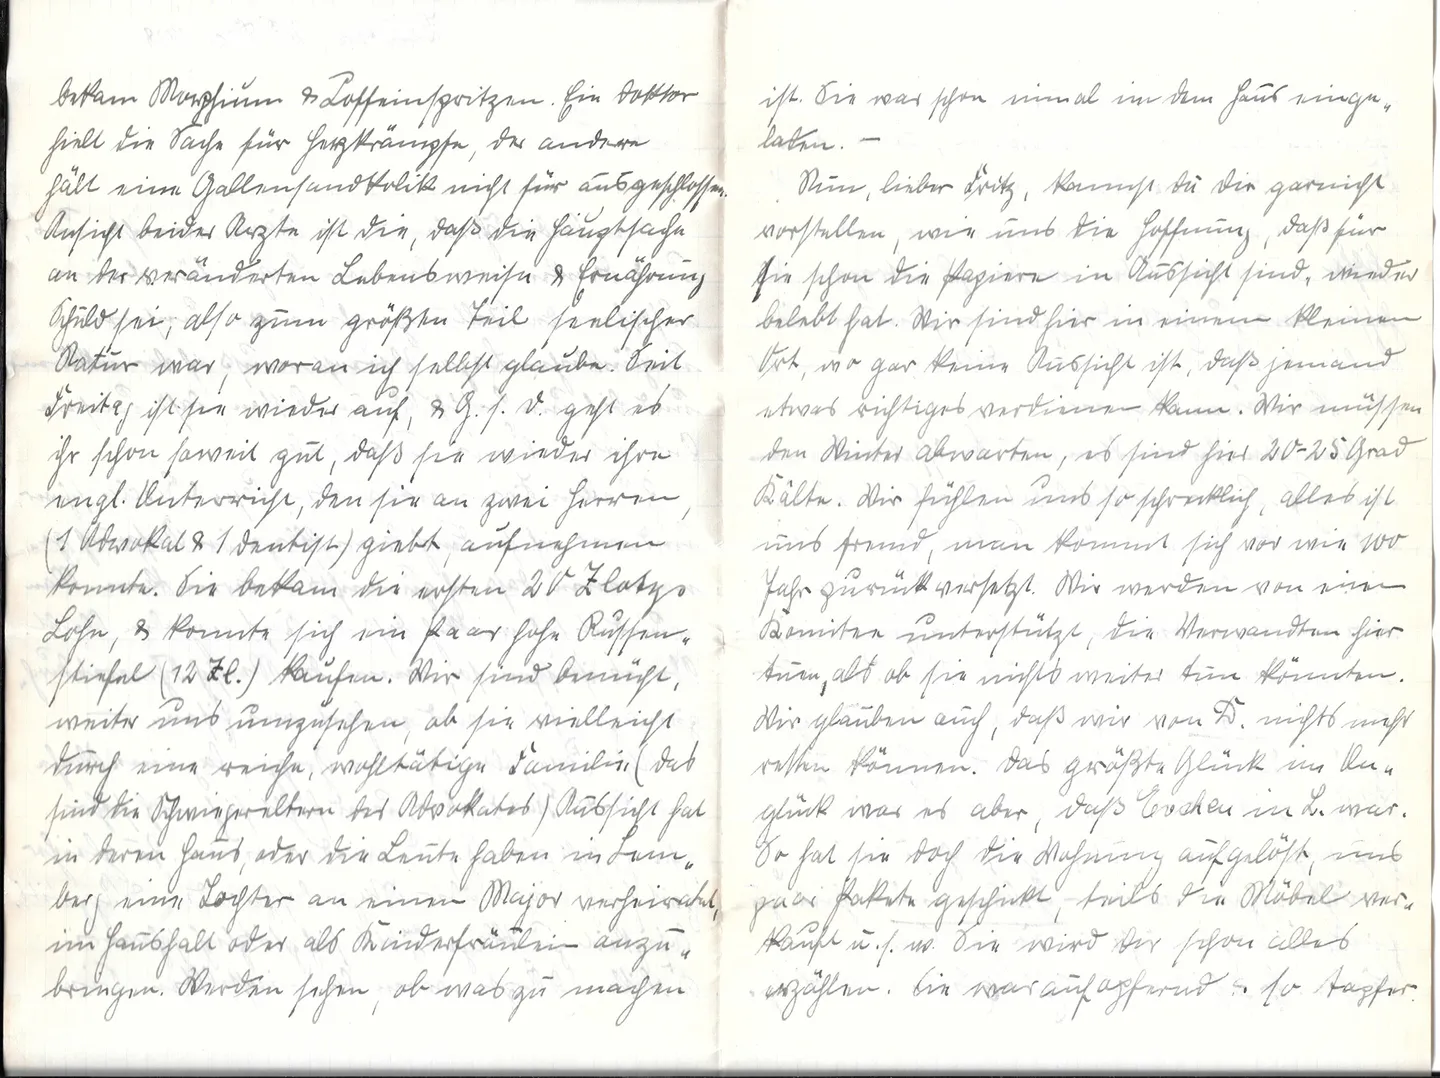 bekam Morphium & Coffeinspritzen. Ein Doktor
hielt die Sache für Herzkrämpfe, der andere
hält eine Gallensandkolik nicht für ausgeschlossen.
Ansicht beider Ärzte ist die, daß die Hauptsache
an der veränderten Lebensweise & Ernährung
Schuld sei, also zum größten Teil seelischer
Natur war, woran ich selbst glaube. Seit
Freitag ist sie wieder auf, & G. s. D. geht es
ihr schon soweit gut, daß sie wieder ihre
engl. Unterricht, den sie an zwei Herren,
(1 Advokat & 1 Dentist) giebt, aufnehmen
konnte. Sie bekam die ersten 20 Zlotys
Lohn, & konnte sich ein Paar hohe Russen-
stiefel (12 Zl.) kaufen. Wir sind bemüht,
weiter uns umzusehen, ob sie vielleicht
durch eine reiche, wohltätige Familie (das
sind die Schwiegereltern des Advokates) Aussicht hat
in deren Haus, oder die Leute haben in Lem-
berg eine Tochter an einen Major verheiratet,
im Haushalt oder als Kinderfräulein anzu-
bringen. Werden sehen, ob was zu machen
ist. Sie war schon einmal in dem Haus einge-
laden. —
Nun, lieber Fritz, kannst du dir garnicht
vorstellen, wie uns die Hoffnung, daß für
sie schon die Papiere in Aussicht sind, wieder
belebt hat. Wir sind hier in einem kleinen
Ort, wo gar keine Aussicht ist, daß jemand
etwas richtiges verdienen kann. Wir müssen
den Winter abwarten, es sind hier 20-25 Grad
Kälte. Wir fühlen uns so schrecklich, alles ist
uns fremd, man kommt sich vor wie 100
Jahr zurückversetzt. Wir werden von einem
Komitee unterstützt, die Verwandten hier
tuen, als ob sie nichts weiter tun könnten.
Wir glauben auch, daß wir von D. nichts mehr
retten können. Das größte Glück im Un-
glück war es aber, daß Evchen in L. war.
So hat sie doch die Wohnung aufgelöst, uns
paar Pakete geschickt, teils die Möbel ver-
kauft u. s. w. Sie wird dir schon alles
erzählen. Sie war aufopfernd & so tapfer.